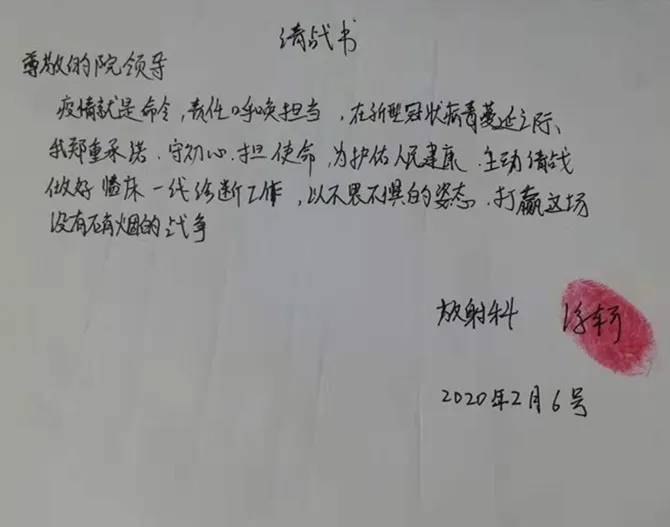 请战书
尊敬的院领导
疫情就是命令,责任呼唤担当,在新型冠状病毒蔓延之际、
我郑重承诺.守初心.担使命,为护佑人民健康.主动请战
做好临床一线诊断工作,以不畏不惧的姿态.打赢这场
没有硝烟的战争
放射科
2020年2月6号